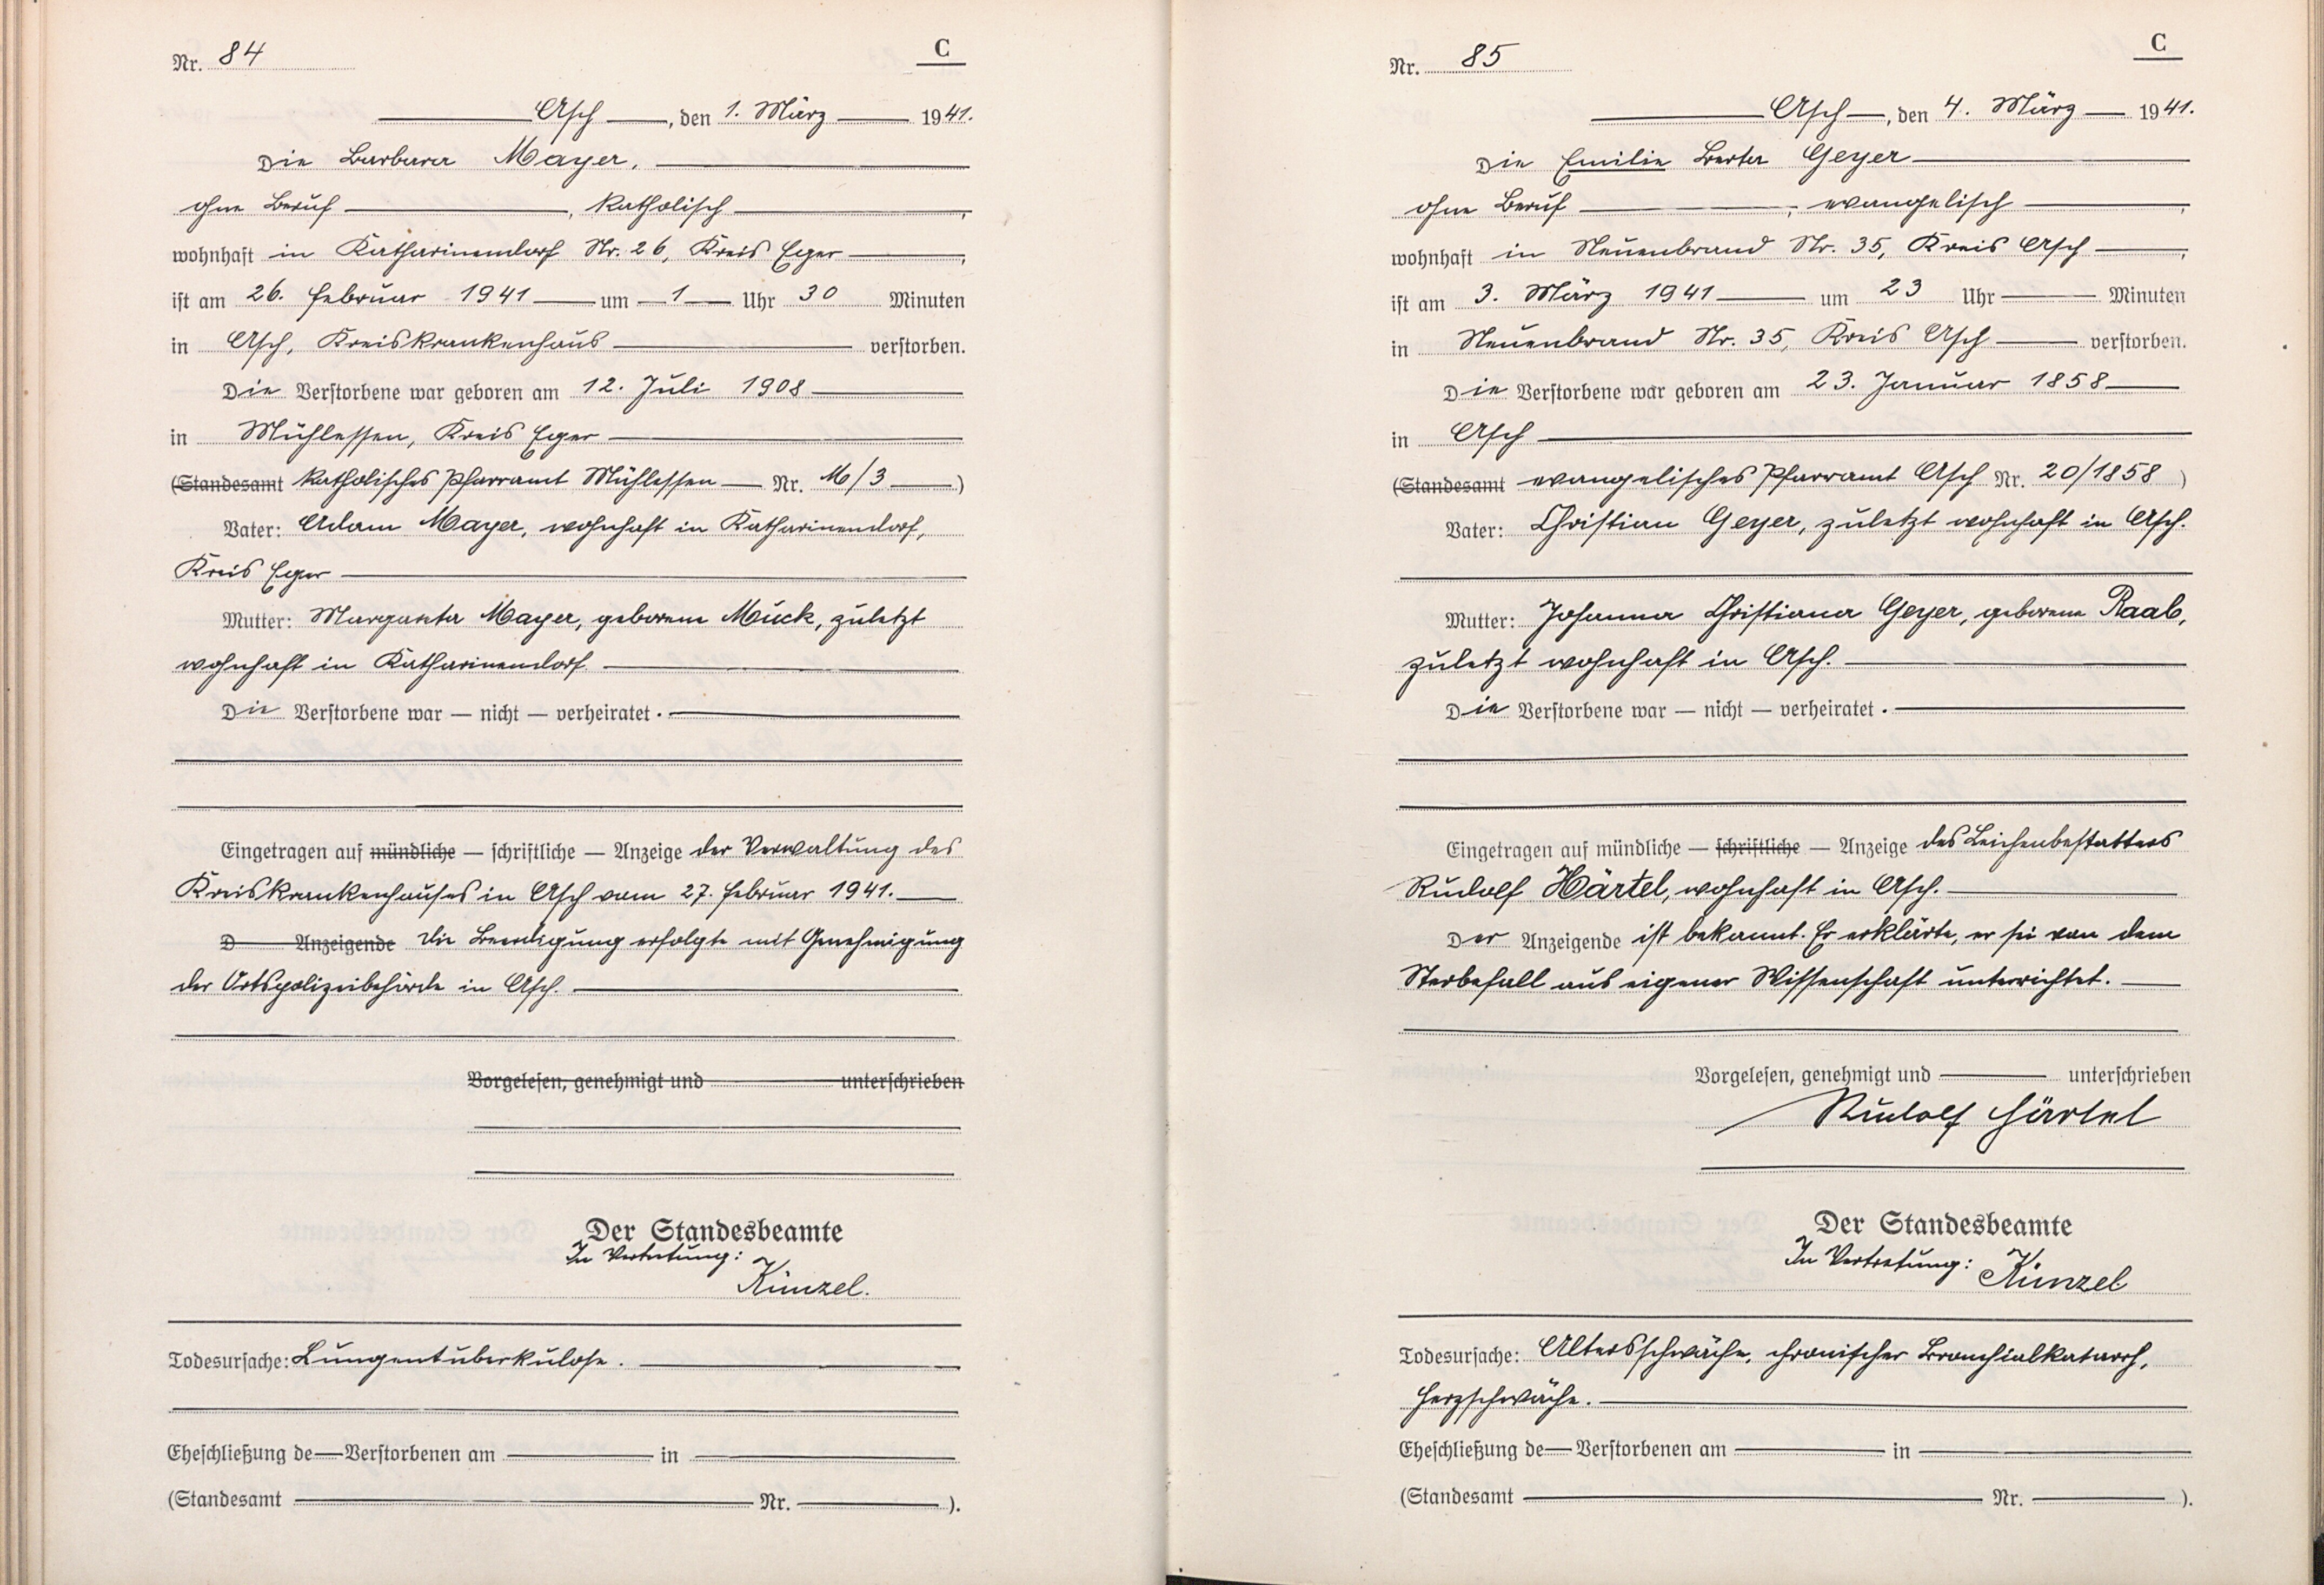 Nr. 84
C
Asch, den 1. März 1941.
Die Barbara Mayer,
ohne Beruf, katholisch,
wohnhaft in Katharinendorf Nr. 26, Kreis Eger,
ist am 26. Februar 1941 um 1 Uhr 30 Minuten
in Asch, Kreiskrankenhaus verstorben.
Die Verstorbene war geboren am 12. Juli 1908
in Mühlessen, Kreis Eger
(Standesamt katholisches Pfarramt Mühlessen Nr. M/3)
Vater: Adam Mayer, wohnhaft in Katharinendorf,
Kreis Eger
Mutter: Margareta Mayer, geborene Muck, zuletzt
wohnhaft in Katharinendorf.
Die Verstorbene war — nicht — verheiratet.
Eingetragen auf mündliche — schriftliche — Anzeige der Verwaltung des
Kreiskrankenhauses in Asch vom 27. Februar 1941.
D Anzeigende Die Beerdigung erfolgte mit Genehmigung
der Ortspolizeibehörde in Asch.
Vorgelesen, genehmigt und unterschrieben
Der Standesbeamte
In Vertretung:
Künzel.
Todesursache: Lungentuberkulose.
Eheschließung de Verstorbenen am in
(Standesamt Nr. ).
Nr. 85
C
Asch, den 4. März 1941.
Die Emilie Berta Geyer
ohne Beruf, evangelisch,
wohnhaft in Neuenbrand Nr. 35, Kreis Asch,
ist am 3. März 1941 um 23 Uhr Minuten
in Neuenbrand Nr. 35, Kreis Asch verstorben.
Die Verstorbene war geboren am 23. Januar 1858
in Asch
(Standesamt evangelisches Pfarramt Asch Nr. 20/1858)
Vater: Christian Geyer, zuletzt wohnhaft in Asch.
Mutter: Johanna Christiana Geyer, geborene Raab,
zuletzt wohnhaft in Asch.
Die Verstorbene war — nicht — verheiratet.
Eingetragen auf mündliche — schriftliche — Anzeige des Leichenbestatters
Rudolf Härtel, wohnhaft in Asch.
Der Anzeigende ist bekannt. Er erklärte, er sei von dem
Sterbefall aus eigener Wissenschaft unterrichtet.
Vorgelesen, genehmigt und unterschrieben
Rudolf Härtel
Der Standesbeamte
In Vertretung: Künzel
Todesursache: Altersschwäche, chronischer Bronchialkatarrh,
Herzschwäche.
Eheschließung de Verstorbenen am in
(Standesamt Nr. ).